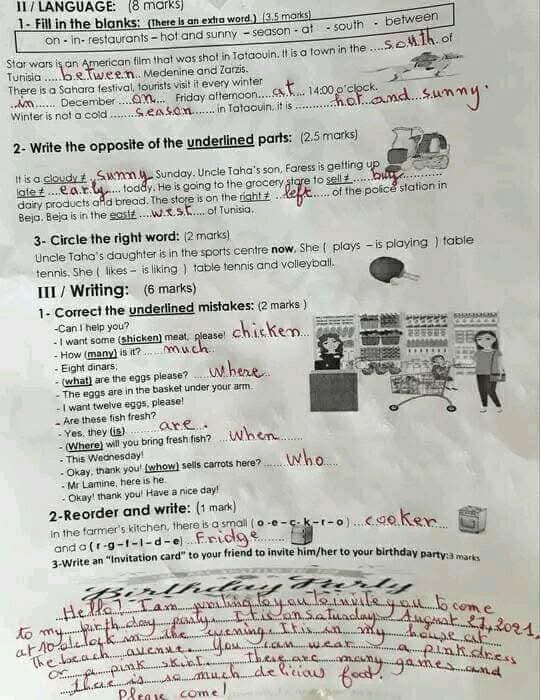 II / LANGUAGE: (8 marks)
1- Fill in the blanks: (There is an extra word.) (3.5 marks)
on - in- restaurants – hot and sunny – season - at - south - between
Star wars is an American film that was shot in Tataouin. It is a town in the ....South. of
Tunisia ....between.. Medenine and Zarzis.
There is a Sahara festival, tourists visit it every winter
..in..... December ....on... Friday afternoon.....at... 14:00 o'clock.
Winter is not a cold .......season....... in Tataouin, it is ..........hot and sunny.
2- Write the opposite of the underlined parts: (2.5 marks)
It is a cloudy ≠ .Sunny. Sunday. Uncle Taha's son, Faress is getting up
late ≠ ...early.... today. He is going to the grocery store to sell ≠ .....buy.......
dairy products and bread. The store is on the right ≠ ...left...... of the police station in
Beja. Beja is in the east≠ ....west.... of Tunisia.
3- Circle the right word: (2 marks)
Uncle Taha's daughter is in the sports centre now. She ( plays – is playing ) table
tennis. She ( likes – is liking ) table tennis and volleyball.
III / Writing: (6 marks)
1- Correct the underlined mistakes: (2 marks )
-Can I help you?
- I want some (shicken) meat, please! chicken...
- How (many) is it? ......much..
- Eight dinars;
- (what) are the eggs please? .....where...
- The eggs are in the basket under your arm.
- I want twelve eggs, please!
- Are these fish fresh?
- Yes, they (is) .........are.
- (Where) will you bring fresh fish? ...When.......
- This Wednesday!
- Okay, thank you! (whow) sells carrots here? ......Who....
- Mr Lamine, here is he.
- Okay! thank you! Have a nice day!
2-Reorder and write: (1 mark)
In the farmer's kitchen, there is a small ( o -e – c - k – r – o ) ...cooker...
and a ( r -g – f – i – d – e) ..Fridge........
3-Write an "Invitation card" to your friend to invite him/her to your birthday party:3 marks
Birthday Party
Hello! I am writing to you to invite you to come
to my birth day party. It is on Saturday August 27, 2021.
at 10 o'clock in the evening. It is in my house at
The beach avenue. You can wear a pink dress
or a pink skirt. There are many games and
there is so much delicious food.
Please come!